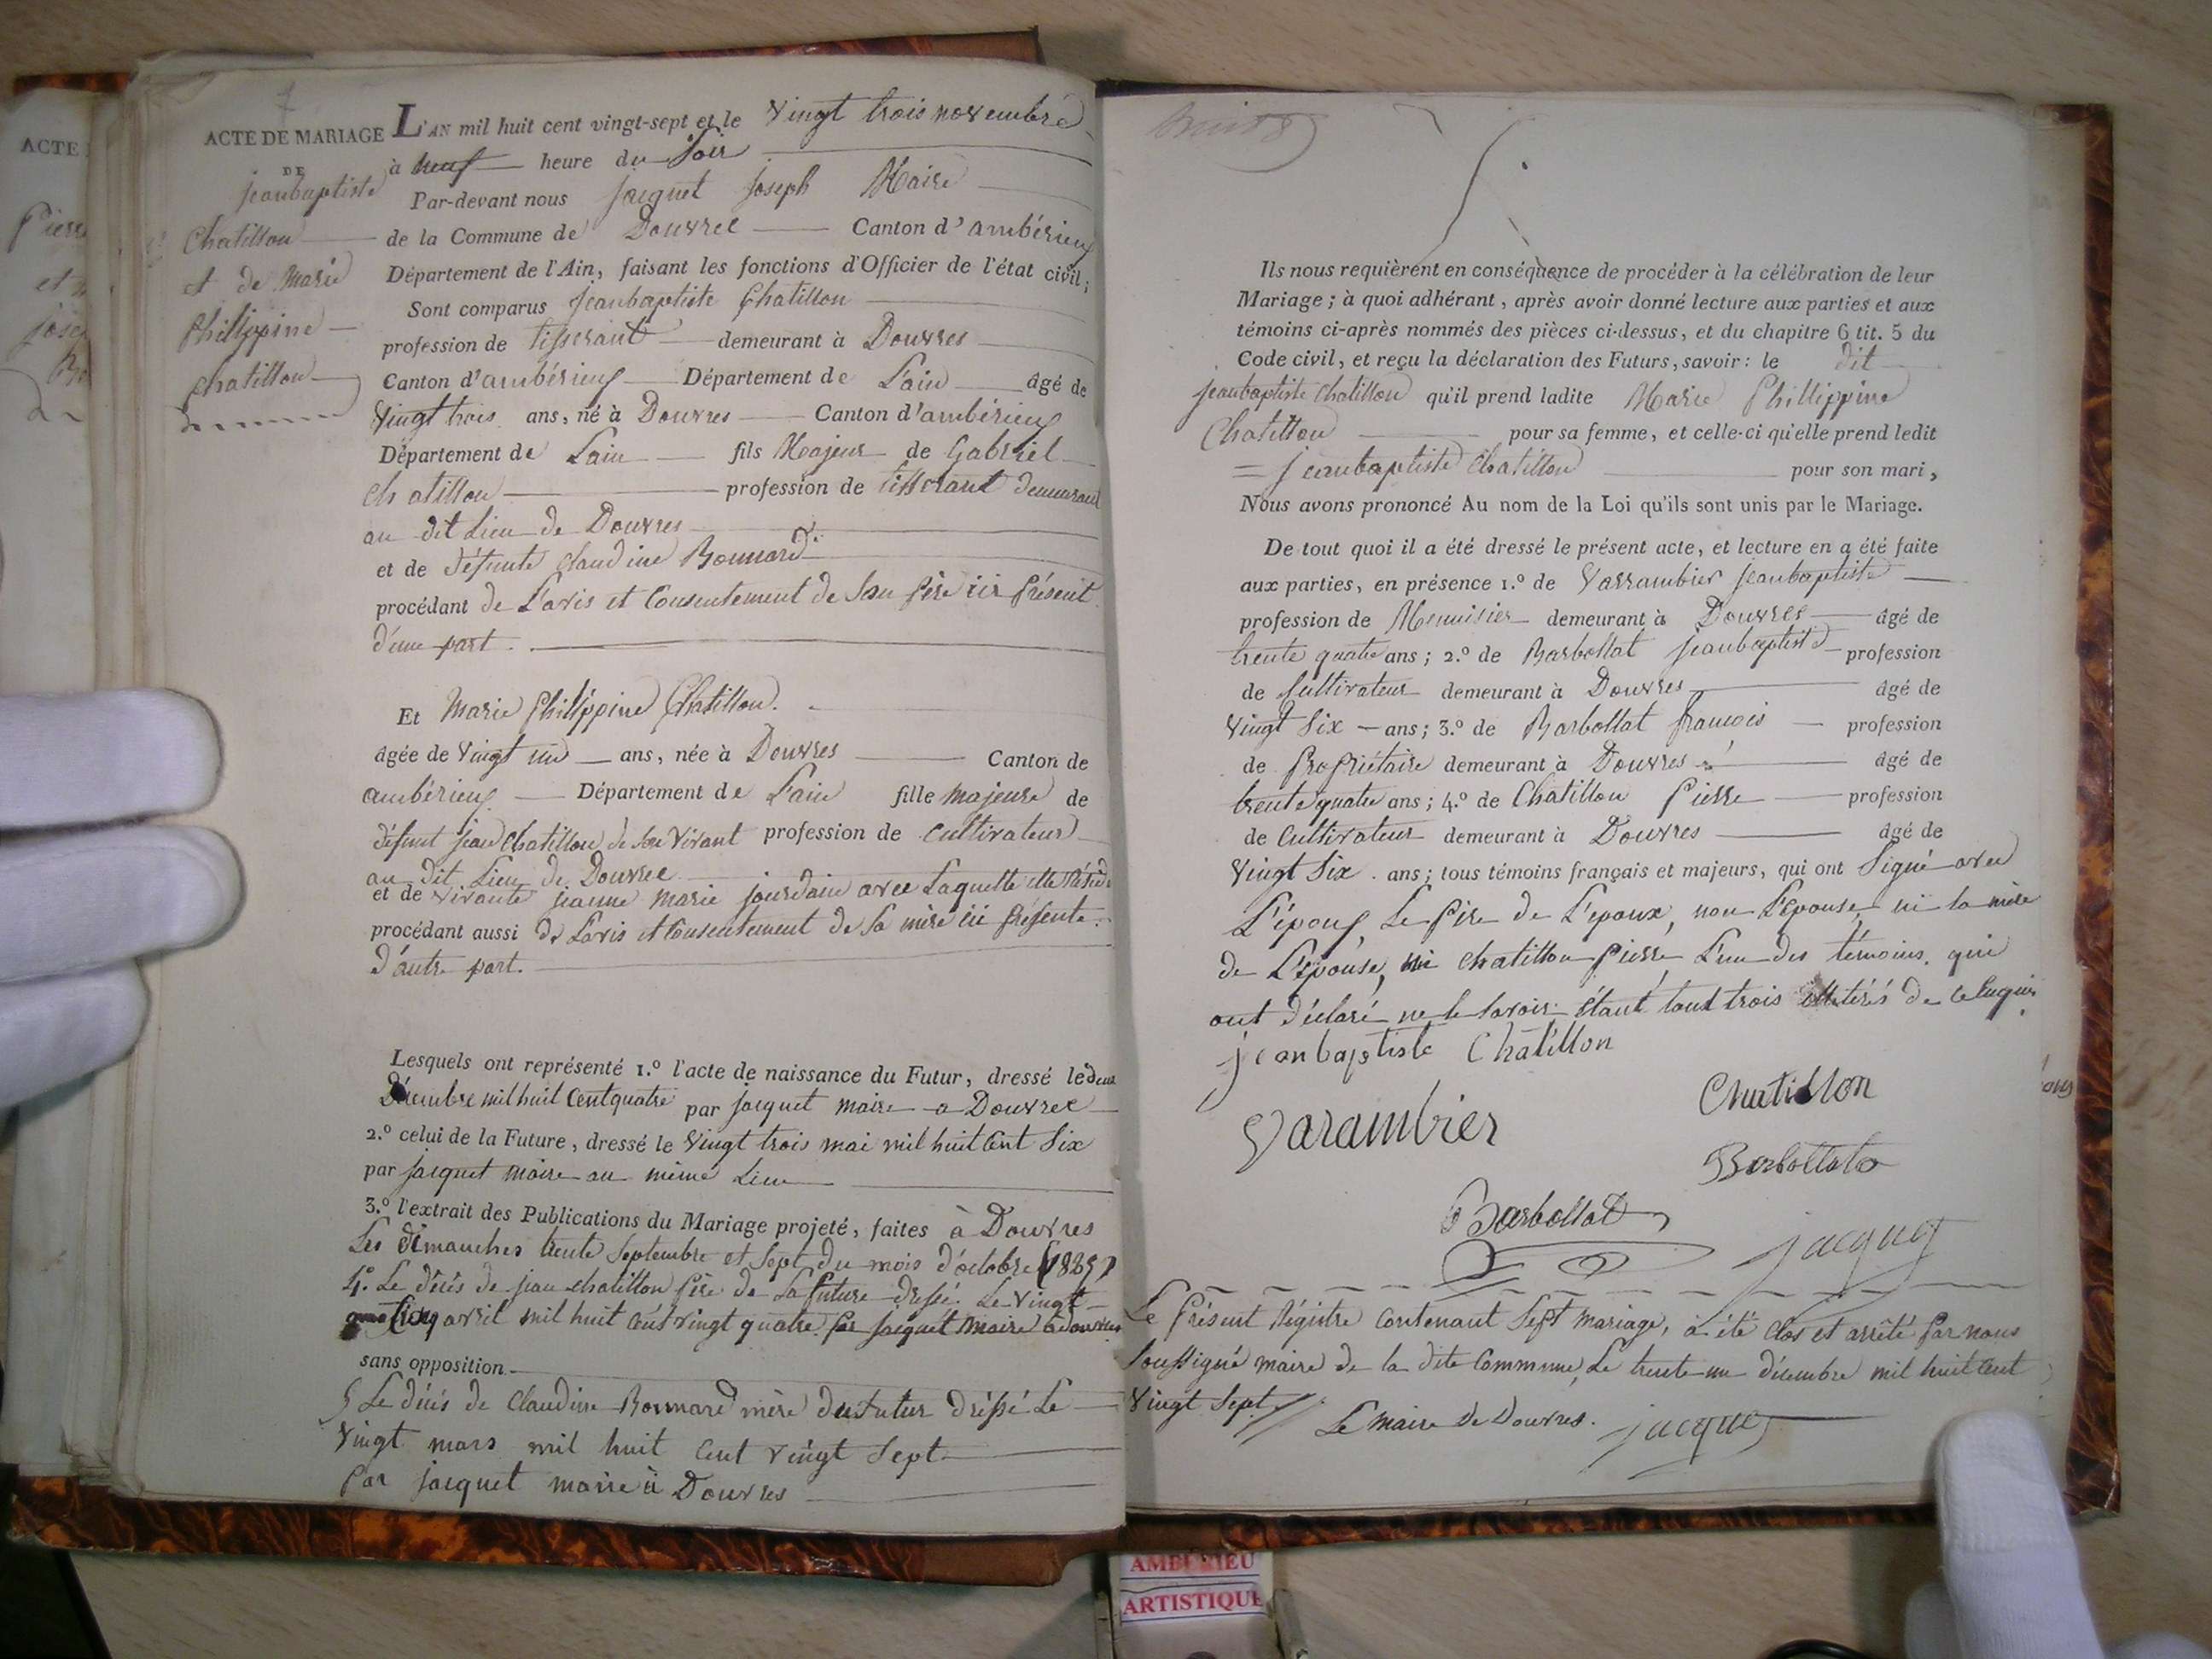 7
ACTE DE MARIAGE
DE
jeanbaptiste
Chatillon
et de Marie
Philippine
chatillon
L'AN mil huit cent vingt-sept et le Vingt trois novembre
à neuf heure du Soir
Par-devant nous jacquet joseph Maire
de la Commune de Douvres Canton d'ambérieux
Département de l'Ain, faisant les fonctions d'Officier de l'état civil;
Sont comparus jeanbaptiste Chatillon
profession de tisserant demeurant à Douvres
Canton d'ambérieux Département de L'ain âgé de
Vingt trois ans, né à Douvres Canton d'ambérieux
Département de Lain fils Majeur de Gabriel
chatillon profession de tisserant demeurant
au dit Lieu de Douvres
et de défunte Claudine Bonnard
procédant de L'avis et Consentement de Son père ici présent
d'une part.
Et Marie Philippine Chatillon.
âgée de Vingt un ans, née à Douvres Canton de
ambérieux Département de L'ain fille majeure de
défunt jean Chatillon de Son Vivant profession de Cultivateur
au dit Lieu de Douvres
et de vivante jeanne marie jourdain avec Laquelle elle réside
procédant aussi de Lavis et Consentement de Sa mère ici présente.
d'autre part.
Lesquels ont représenté 1.º l'acte de naissance du Futur, dressé le deux
Décembre mil huit Cent quatre par jacquet maire a Douvres
2.º celui de la Future, dressé le Vingt trois mai mil huit Cent Six
par jacquet maire au même Lieu
3.º l'extrait des Publications du Mariage projeté, faites à Douvres
Les dimanches trente Septembre et Sept du mois d'octobre 1827
4.º Le décès de jean chatillon père de La future dressé Le Vingt
Cinq avril mil huit Cent vingt quatre par jacquet maire a douvres
sans opposition
5 Le décès de Claudine Bonnard mère du futur dréssé Le
Vingt mars mil huit Cent vingt Sept
Par jacquet maire à Douvres
Ils nous requièrent en conséquence de procéder à la célébration de leur
Mariage; à quoi adhérant, après avoir donné lecture aux parties et aux
témoins ci-après nommés des pièces ci-dessus, et du chapitre 6 tit. 5 du
Code civil, et reçu la déclaration des Futurs, savoir: le dit
jeanbaptiste Chatillon qu'il prend ladite Marie Phillippine
Chatillon pour sa femme, et celle-ci qu'elle prend ledit
= jeanbaptiste Chatillon pour son mari,
Nous avons prononcé Au nom de la Loi qu'ils sont unis par le Mariage.
De tout quoi il a été dressé le présent acte, et lecture en a été faite
aux parties, en présence 1.º de Varrambier jeanbaptiste
profession de Menuisier demeurant à Douvres âgé de
trente quatre ans; 2.º de Barbollat jeanbaptiste profession
de Cultivateur demeurant à Douvres âgé de
Vingt Six ans; 3.º de Barbollat francois profession
de Propriétaire demeurant à Douvres âgé de
trente quatre ans; 4.º de Chatillon Pierre profession
de Cultivateur demeurant à Douvres âgé de
Vingt Six ans; tous témoins français et majeurs, qui ont Signé avec
L'époux, Le Père de L'epoux, non L'epouse, ni la mère
de L'épouse, ni chatillon pierre L'un des témoins, qui
ont déclaré ne le Savoir étant tout trois illetérés de ce Enquis.
jeanbaptiste Chatillon
Chatillon
Varambier
Barbollat
Barbollat
jacquet
Le Présent Régistre Contenant Sept mariage, a été clos et arrêté par nous
Soussigné maire de la dite Commune, Le trente un décembre mil huit Cent
Vingt Sept
Le maire De Douvres. jacquet
ACTE
Pierre
et
AMBERIEU
ARTISTIQUE